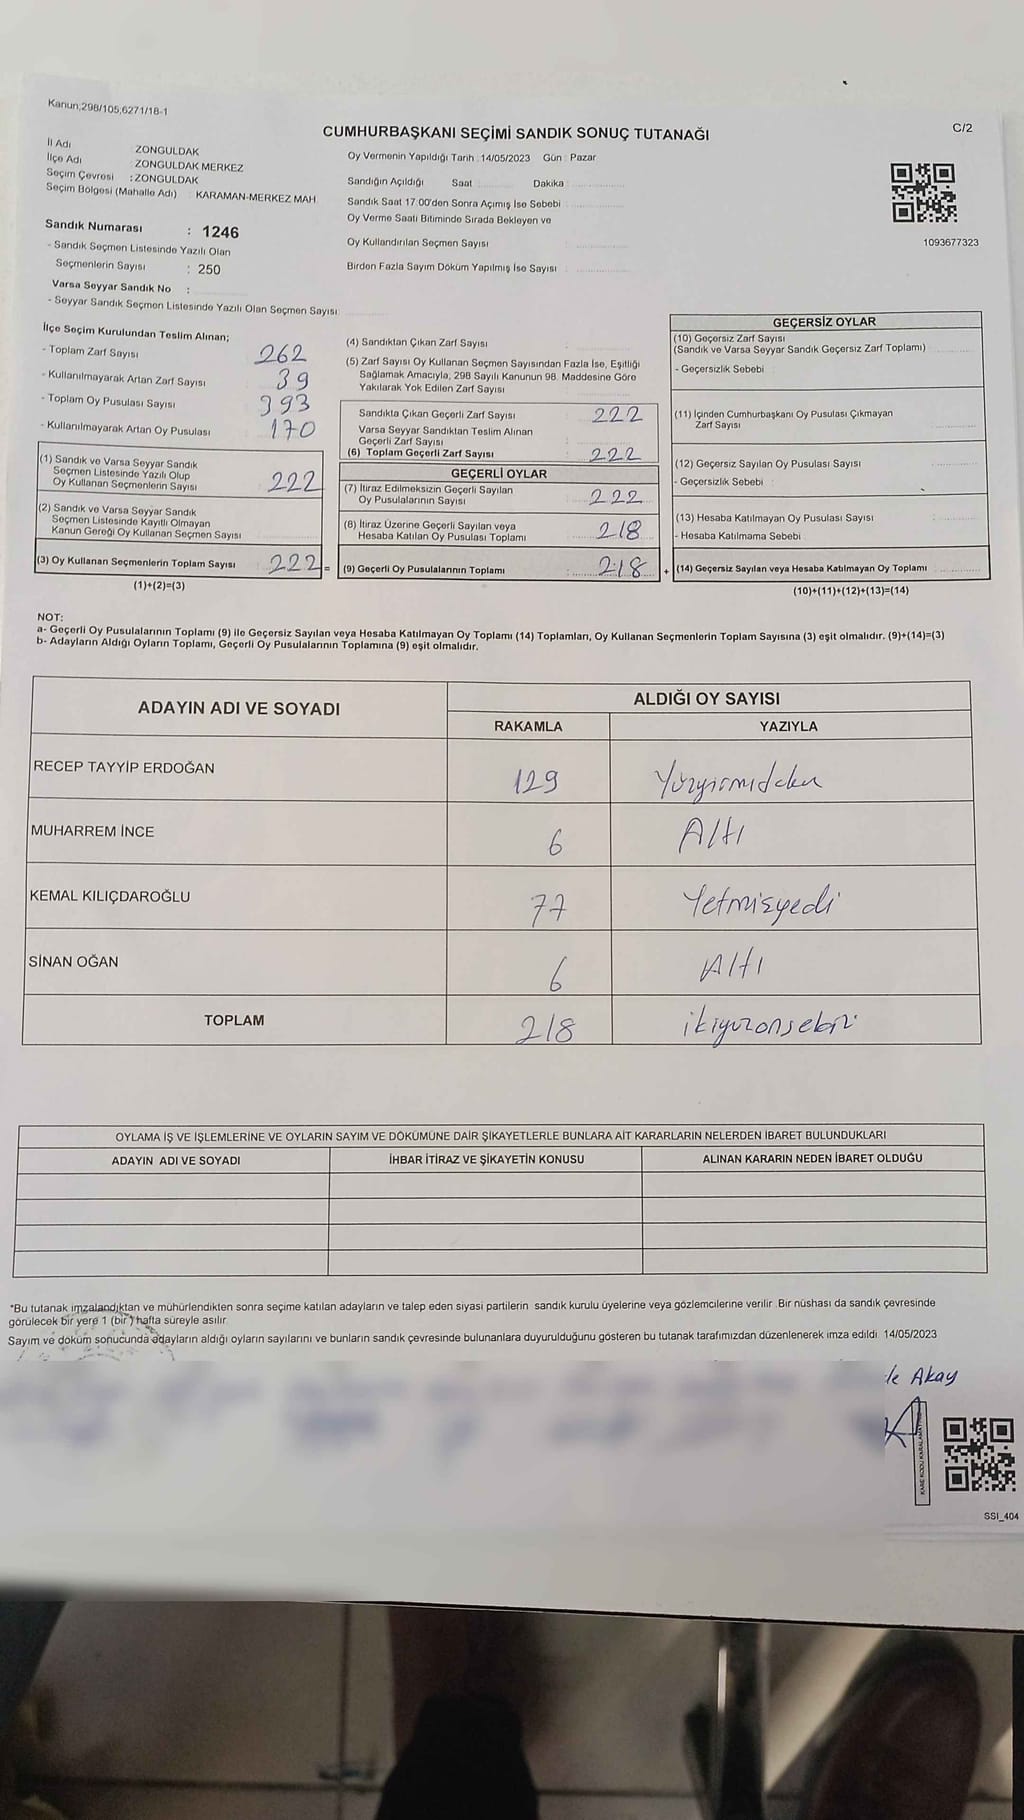 Kanun;298/105,6271/18-1
C/2
CUMHURBAŞKANI SEÇİMİ SANDIK SONUÇ TUTANAĞI
İl Adı ZONGULDAK
İlçe Adı ZONGULDAK MERKEZ
Seçim Çevresi :ZONGULDAK
Seçim Bölgesi (Mahalle Adı) KARAMAN-MERKEZ MAH.
Sandık Numarası : 1246
- Sandık Seçmen Listesinde Yazılı Olan
Seçmenlerin Sayısı : 250
Varsa Seyyar Sandık No :
- Seyyar Sandık Seçmen Listesinde Yazılı Olan Seçmen Sayısı
Oy Vermenin Yapıldığı Tarih :14/05/2023 Gün : Pazar
Sandığın Açıldığı Saat Dakika
Sandık Saat 17:00'den Sonra Açımış İse Sebebi
Oy Verme Saati Bitiminde Sırada Bekleyen ve
Oy Kullandırılan Seçmen Sayısı :
Birden Fazla Sayım Döküm Yapılmış İse Sayısı :
1093677323
İlçe Seçim Kurulundan Teslim Alınan;
- Toplam Zarf Sayısı 262
- Kullanılmayarak Artan Zarf Sayısı 39
- Toplam Oy Pusulası Sayısı 393
- Kullanılmayarak Artan Oy Pusulası 170
(1) Sandık ve Varsa Seyyar Sandık
Seçmen Listesinde Yazılı Olup
Oy Kullanan Seçmenlerin Sayısı 222
(2) Sandık ve Varsa Seyyar Sandık
Seçmen Listesinde Kayıtlı Olmayan
Kanun Gereği Oy Kullanan Seçmen Sayısı
(3) Oy Kullanan Seçmenlerin Toplam Sayısı 222 =
(1)+(2)=(3)
(4) Sandıktan Çıkan Zarf Sayısı
(5) Zarf Sayısı Oy Kullanan Seçmen Sayısından Fazla İse, Eşitliği
Sağlamak Amacıyla, 298 Sayılı Kanunun 98. Maddesine Göre
Yakılarak Yok Edilen Zarf Sayısı
Sandıkta Çıkan Geçerli Zarf Sayısı 222
Varsa Seyyar Sandıktan Teslim Alınan
Geçerli Zarf Sayısı
(6) Toplam Geçerli Zarf Sayısı 222
GEÇERLİ OYLAR
(7) İtiraz Edilmeksizin Geçerli Sayılan
Oy Pusulalarının Sayısı 222
(8) İtiraz Üzerine Geçerli Sayılan veya
Hesaba Katılan Oy Pusulası Toplamı 218
(9) Geçerli Oy Pusulalarının Toplamı 218 +
GEÇERSİZ OYLAR
(10) Geçersiz Zarf Sayısı
(Sandık ve Varsa Seyyar Sandık Geçersiz Zarf Toplamı)
- Geçersizlik Sebebi
(11) İçinden Cumhurbaşkanı Oy Pusulası Çıkmayan
Zarf Sayısı
(12) Geçersiz Sayılan Oy Pusulası Sayısı
- Geçersizlik Sebebi
(13) Hesaba Katılmayan Oy Pusulası Sayısı
- Hesaba Katılmama Sebebi
(14) Geçersiz Sayılan veya Hesaba Katılmayan Oy Toplamı
(10)+(11)+(12)+(13)=(14)
NOT:
a- Geçerli Oy Pusulalarının Toplamı (9) ile Geçersiz Sayılan veya Hesaba Katılmayan Oy Toplamı (14) Toplamları, Oy Kullanan Seçmenlerin Toplam Sayısına (3) eşit olmalıdır. (9)+(14)=(3)
b- Adayların Aldığı Oyların Toplamı, Geçerli Oy Pusulalarının Toplamına (9) eşit olmalıdır.
ADAYIN ADI VE SOYADI ALDIĞI OY SAYISI
RAKAMLA YAZIYLA
RECEP TAYYİP ERDOĞAN 129 Yüzyirmidokuz
MUHARREM İNCE 6 Altı
KEMAL KILIÇDAROĞLU 77 Yetmişyedi
SİNAN OĞAN 6 Altı
TOPLAM 218 ikiyüzonsekiz
OYLAMA İŞ VE İŞLEMLERİNE VE OYLARIN SAYIM VE DÖKÜMÜNE DAİR ŞİKAYETLERLE BUNLARA AİT KARARLARIN NELERDEN İBARET BULUNDUKLARI
ADAYIN ADI VE SOYADI İHBAR İTİRAZ VE ŞİKAYETİN KONUSU ALINAN KARARIN NEDEN İBARET OLDUĞU
*Bu tutanak imzalandıktan ve mühürlendikten sonra seçime katılan adayların ve talep eden siyasi partilerin sandık kurulu üyelerine veya gözlemcilerine verilir .Bir nüshası da sandık çevresinde
görülecek bir yere 1 (bir ) hafta süreyle asılır.
Sayım ve döküm sonucunda adayların aldığı oyların sayılarını ve bunların sandık çevresinde bulunanlara duyurulduğunu gösteren bu tutanak tarafımızdan düzenlenerek imza edildi. 14/05/2023
le Akay
SSI_404